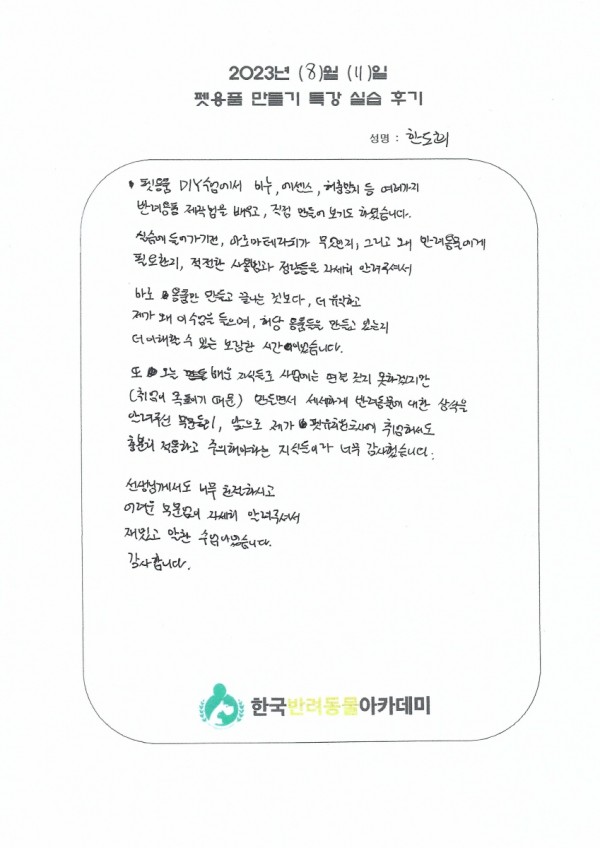 2023년 (8)월 (11)일
펫용품 만들기 특강 실습 후기
성명 : 한도희
• 펫용품 DIY수업에서 비누, 에센스, 등 여러가지
반려용품 제작법을 배우고, 직접 만들어 보기도 하였습니다.
실습에 들어가기전, 아로마테라피가 무엇인지, 그리고 왜 반려동물에게
필요한지, 적절한 사용법과 자세히 알려주셔서
바로 용품만 만들고 끝나는 것보다, 더 유익하고
제가 왜 이 수업을 들으며, 해당 용품들을 만들고 있는지
더 이해할 수 있는 보람찬 시간이었습니다.
또 오늘 배운 지식들로 사업에는 하겠지만
(취업이 목표이기 때문) 만들면서 세세하게 반려동물에 대한 상식을
알려주신 부분들이, 앞으로 제가 취업해서도
충분히 적용하고 주의해야하는 지식들이라 너무 감사했습니다.
선생님께서도 너무 친절하시고
어려운 부분없이 자세히 알려주셔서
재밌고 알찬 수업이었습니다.
감사합니다.
한국반려동물아카데미